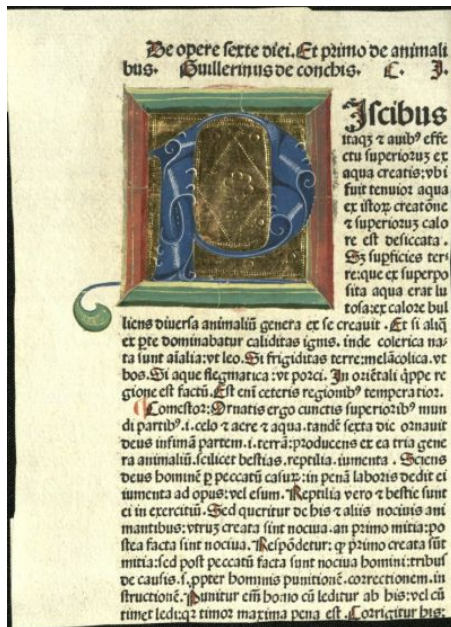 De opere sexte diei. Et primo de animali
bus. Guillerinus de conchis. C. I.
P Iscibus
itaqꝫ ⁊ auibꝰ effe
ctu superioruꝫ ex
aqua creatis: vbi
fuit tenuior aqua
ex istoꝝ creatōne
⁊ superioruꝫ calo
re est desiccata.
Sꝫ suꝑficies ter⸗
re: que ex superpo
sita aqua erat lu
tosa: ex calore bul
liens diuersa animaliū genera ex se creauit. Et si aliq̄
ex ꝑte dominabatur caliditas ignis. inde colerica na⸗
ta sunt aīalia: vt leo. Si frigiditas terre: melācolica. vt
bos. Si aque flegmatica: vt porci. In oriētali q̄ppe re
gione est factū. Est enī ceteris regionibꝰ temperatior.
¶ Comestor: Ornatis ergo cunctis superioribꝰ mun
di partibꝰ .i. celo ⁊ aere ⁊ aqua. tandē sexta die ornauit
deus infimā partem .i. terrā: producens ex ea tria gene
ra animaliū. scilicet bestias. reptilia. iumenta. Sciens
deus hominē ꝑ peccatū casurꝫ: in penā laboris dedit ei
iumenta ad opus: vel esum. Reptilia vero ⁊ bestie sunt
ei in exercitiū. Sed queritur de his ⁊ aliis nociuis ani
mantibus: vtruꝫ creata sint nociua. an primo mitia: po
stea facta sint nociua. Respōdetur: ꝙ primo creata sūt
mitia: sed post peccatū facta sunt nociua homini: tribus
de causis .s. ꝓpter hominis punitionē. correctionem. in
structionē. Punitur em̄ homo cū leditur ab his: vel cū
timet ledi: qꝛ timor maxima pena est. Corrigitur his: